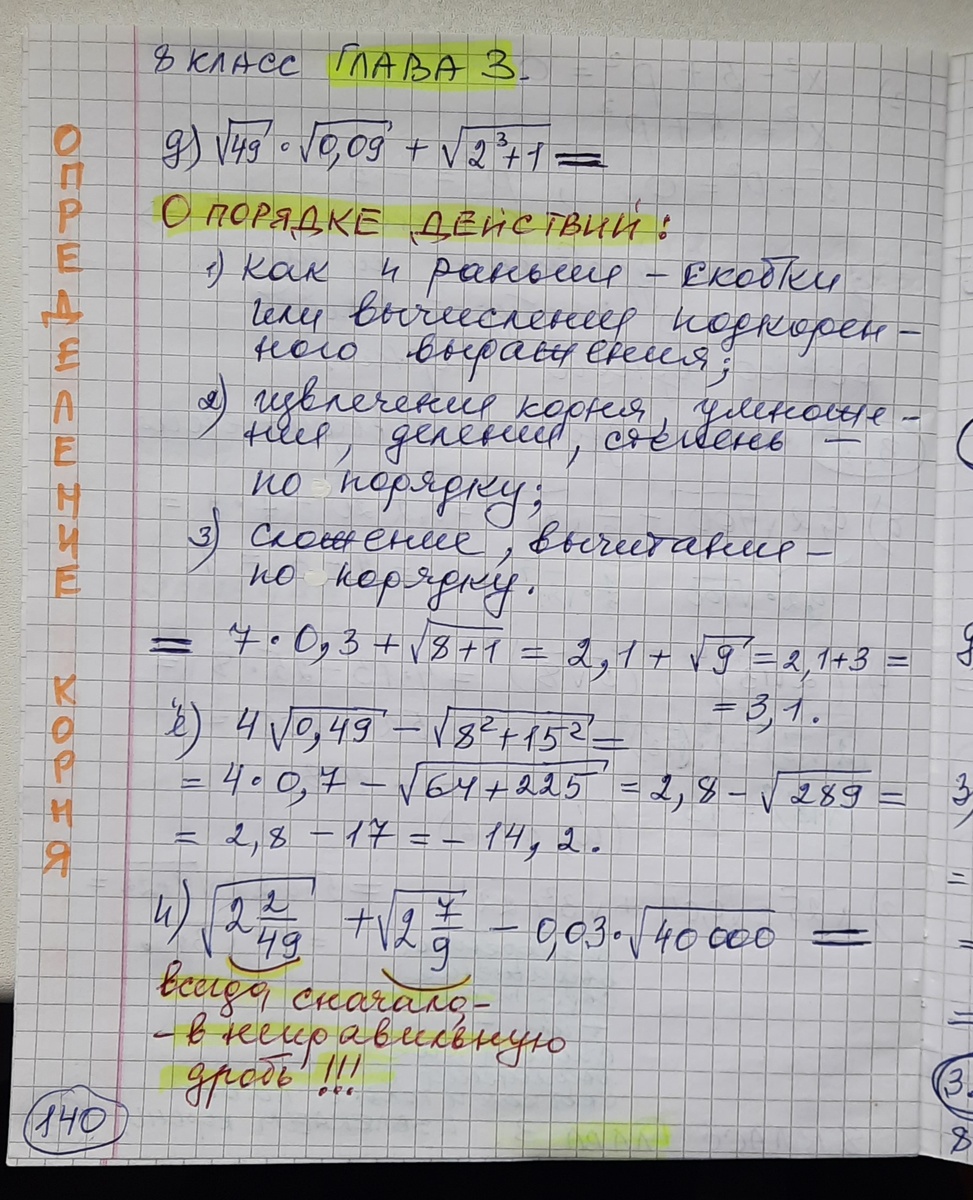 8 КЛАСС ГЛАВА 3.
ОПРЕДЕЛЕНИЕ КОРНЯ
д) √49 · √0,09 + √2³+1 =
О ПОРЯДКЕ ДЕЙСТВИЙ:
1) как и раньше – скобки
или вычисления подкорен-
ного выражения;
2) извлечение корня, умноже-
ние, деление, степень –
по порядку;
3) сложение, вычитание –
по порядку.
= 7 · 0,3 + √8+1 = 2,1 + √9 = 2,1+3 =
= 3,1.
е) 4 √0,49 – √8²+15² =
= 4 · 0,7 – √64+225 = 2,8 – √289 =
= 2,8 – 17 = – 14,2.
и) √2 2/49 + √2 7/9 – 0,03 · √40 000 =
всегда сначала –
– в неправильную
дробь !!!
140
3.
8